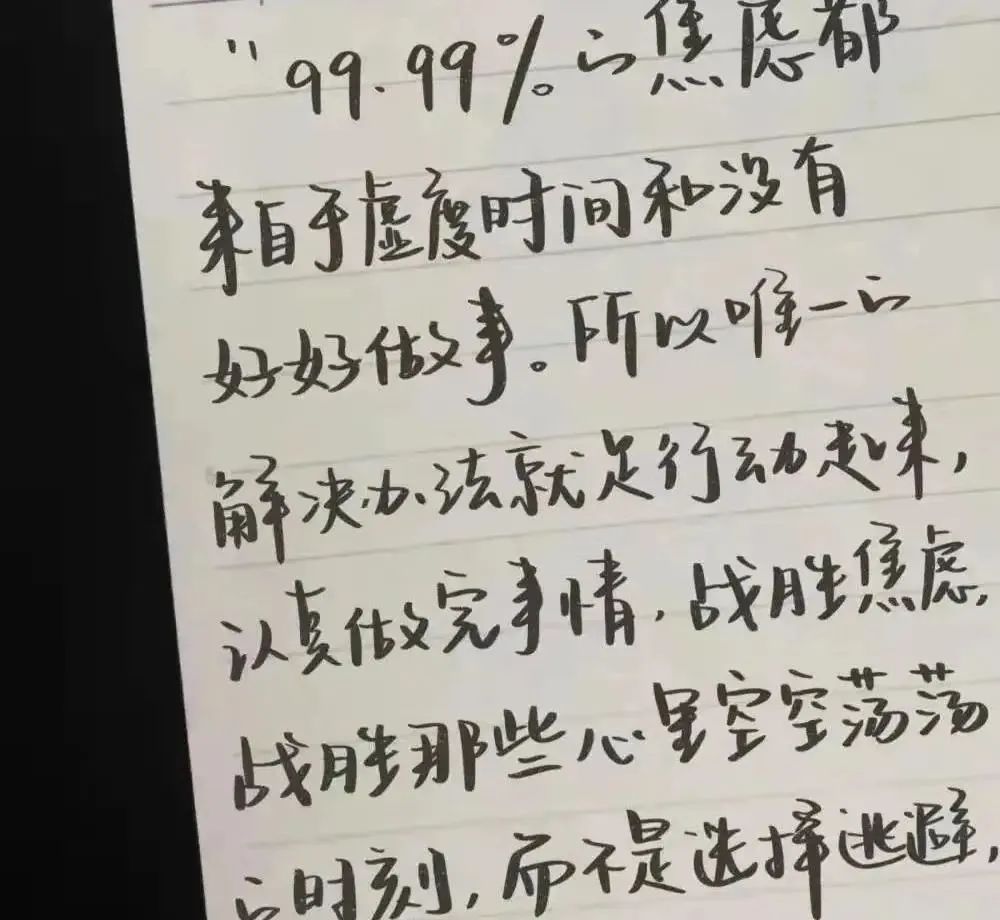 "99.99%的焦虑都
来自于虚度时间和没有
好好做事。所以唯一的
解决办法就是行动起来,
认真做完事情,战胜焦虑,
战胜那些心里空空荡荡
的时刻,而不是选择逃避,